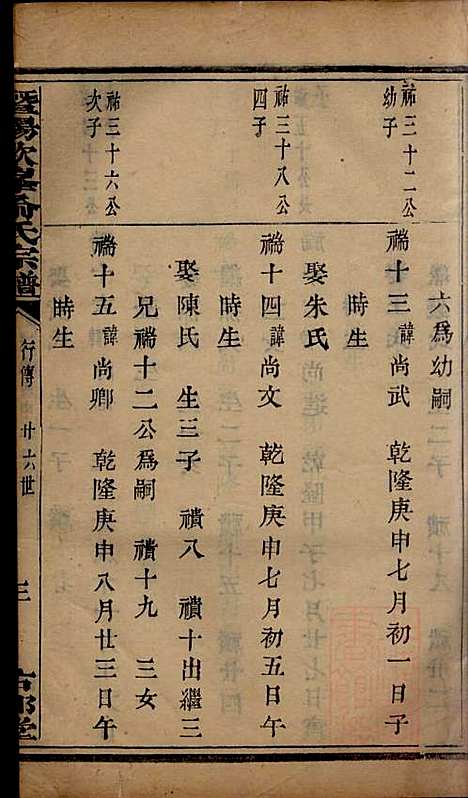 六為幼嗣
祐三十二公幼子
端十三 諱尚武 乾隆庚申七月初一日子
時生
娶朱氏
祐三十八公四子
端十四 諱尚文 乾隆庚申七月初五日午
時生
娶陳氏 生三子 積八 積十出繼三
兄端十二公為嗣 積十九 三女
祐三十六公次子
端十五 諱尚卿 乾隆庚申八月廿三日午
時生
暨陽次峯俞氏宗譜
行傳 廿六世
三